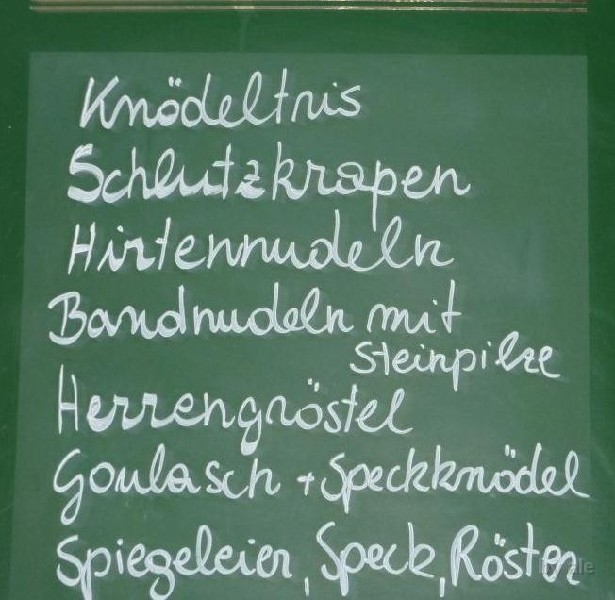 Knödeltris
Schlutzkrapen
Hirtennudeln
Bandnudeln mit
Steinpilze
Herrengröstel
Goulasch + Speckknödel
Spiegeleier, Speck, Rösten
by ale